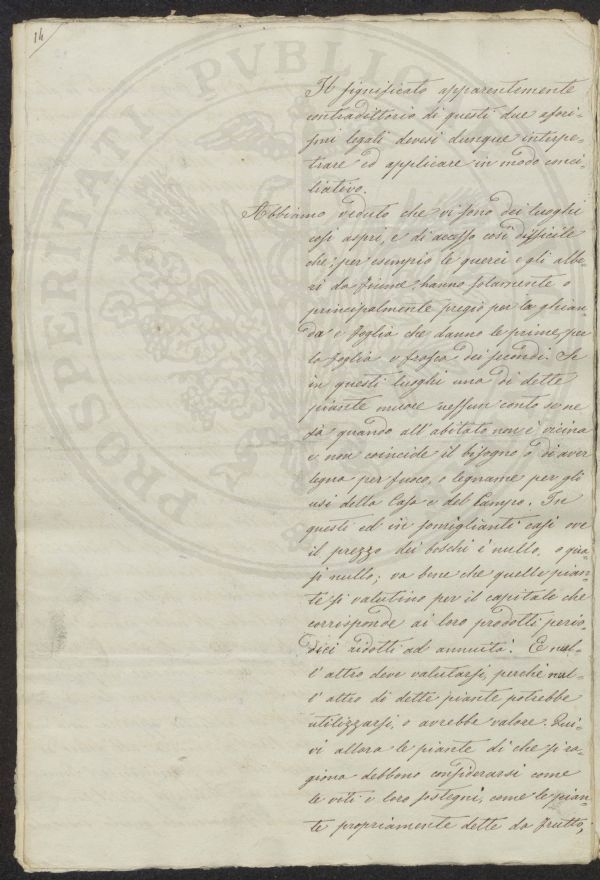 14
PROSPERITATI PVBLIC
Il significato apparentemente
contradittorio di questi due afori-
smi legali devesi dunque interpe-
trare ed applicare in modo conci-
liativo.
Abbiamo veduto che vi sono dei luoghi
così aspri, e di accesso così difficile
che; per esempio le querci e gli albe-
ri da fiume hanno solamente o
principalmente pregio per la ghian-
da e foglia che danno le prime, per
la foglia o frasca dei secondi. Se
in questi luoghi una di dette
piante muore nessun conto se ne
fa quando all'abitato non è vicina
e non coincide il bisogno o di aver
legna per fuoco, o legname per gli
usi della Casa e del Campo. In
questi ed in somiglianti casi ove
il prezzo dei boschi è nullo, o qua-
si nullo; va bene che quelle pian-
te si valutino per il capitale che
corrisponde ai loro prodotti perio-
dici ridotti ad annuità. E nul-
l'altro deve valutarsi, perchè nul-
l'altro di dette piante potrebbe
utilizzarsi, o avrebbe valore. Qui-
vi allora le piante di che si ra-
giona debbono considerarsi come
le viti e loro sostegni, come le pian-
te propriamente dette da frutto,